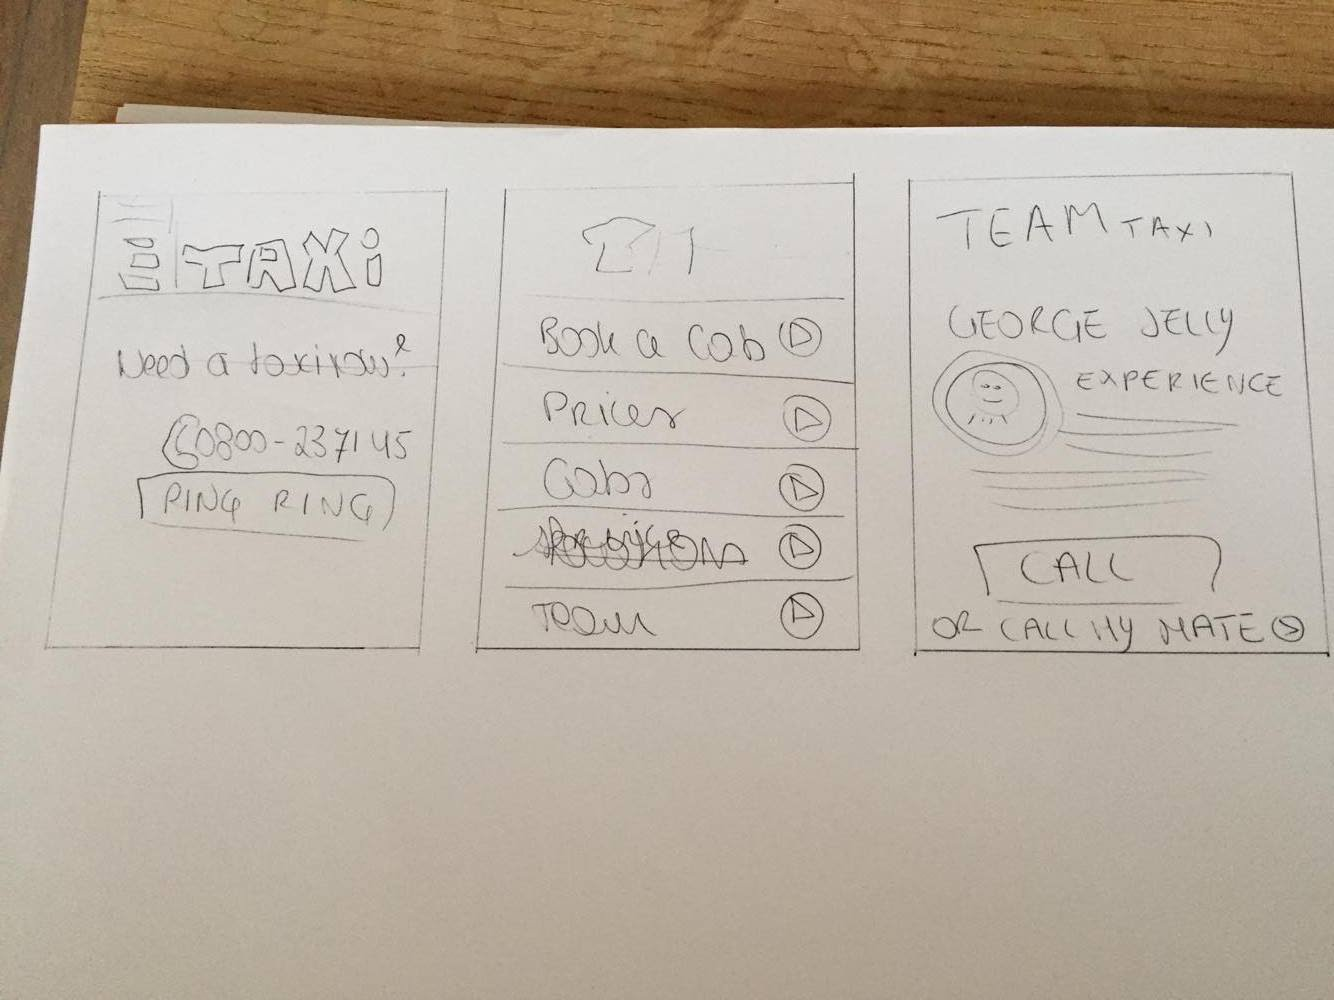 TAXi
Need a taxi now?
0800-237145
PING RING
Book a Cab
Prices
Cabs
Team
TEAM TAXI
GEORGE JELLY
EXPERIENCE
CALL
OR CALL MY MATE